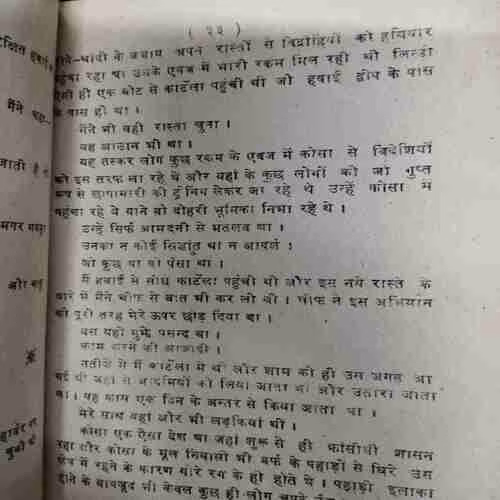 ( २३ )
के बजाय अपने रास्तों से विद्रोहियों को हथियार
पहुंचा रहा था उनके एवज में भारी रकम मिल रही थी लिन्डा
ऐसी ही एक बोट से कार्टेला पहुंची थी जो हवाई द्वीप के पास
के पास ही था ।
मैंने भी वही रास्ता चुना ।
यह आसान भी था ।
यह तस्कर लोग कुछ रकम के एवज में कोसा से विदेशियों
को इस तरफ ला रहे थे और यहां के कुछ लोगों को जो गुप्त
रूप से छापामारी की ट्रेनिंग लेकर जा रहे थे उन्हें कोसा में
पहुंचा रहे थे याने वो दोहरी भूमिका निभा रहे थे ।
उन्हें सिर्फ आमदनी से मतलब था ।
उनका न कोई सिद्धांत था न आदर्श ।
जो कुछ था वो पैसा था ।
मैं हवाई से सीधे कार्टेला पहुंची थी और इस नये रास्ते के
बारे में मैंने चीफ से बात भी कर ली थी । चीफ ने इस अभियान
को पूरी तरह मेरे ऊपर छोड़ दिया था ।
बस यही मुझे पसन्द था ।
काम करने की आजादी ।
नतीजे में मैं कार्टेला में थी और शाम को ही उस जगह आ
गई थी जहां से आदमियों को लिया जाता था और उतारा जाता
था । यह काम एक दिन के अन्तर से किया जाता था ।
मेरे साथ वहां और भी लड़कियां थीं ।
कोसा एक ऐसा देश था जहां शुरू से ही फ्रांसीसी शासन
रहा और कोसा के मूल निवासी भी बर्फ के पहाड़ों से घिरे उस
क्षेत्र में रहने के कारण गोरे रंग के ही होते थे । पहाड़ी इलाका
होने के बावजूद भी केवल कुछ ही लोग
मैंने कहा
जाती है
मगर
और